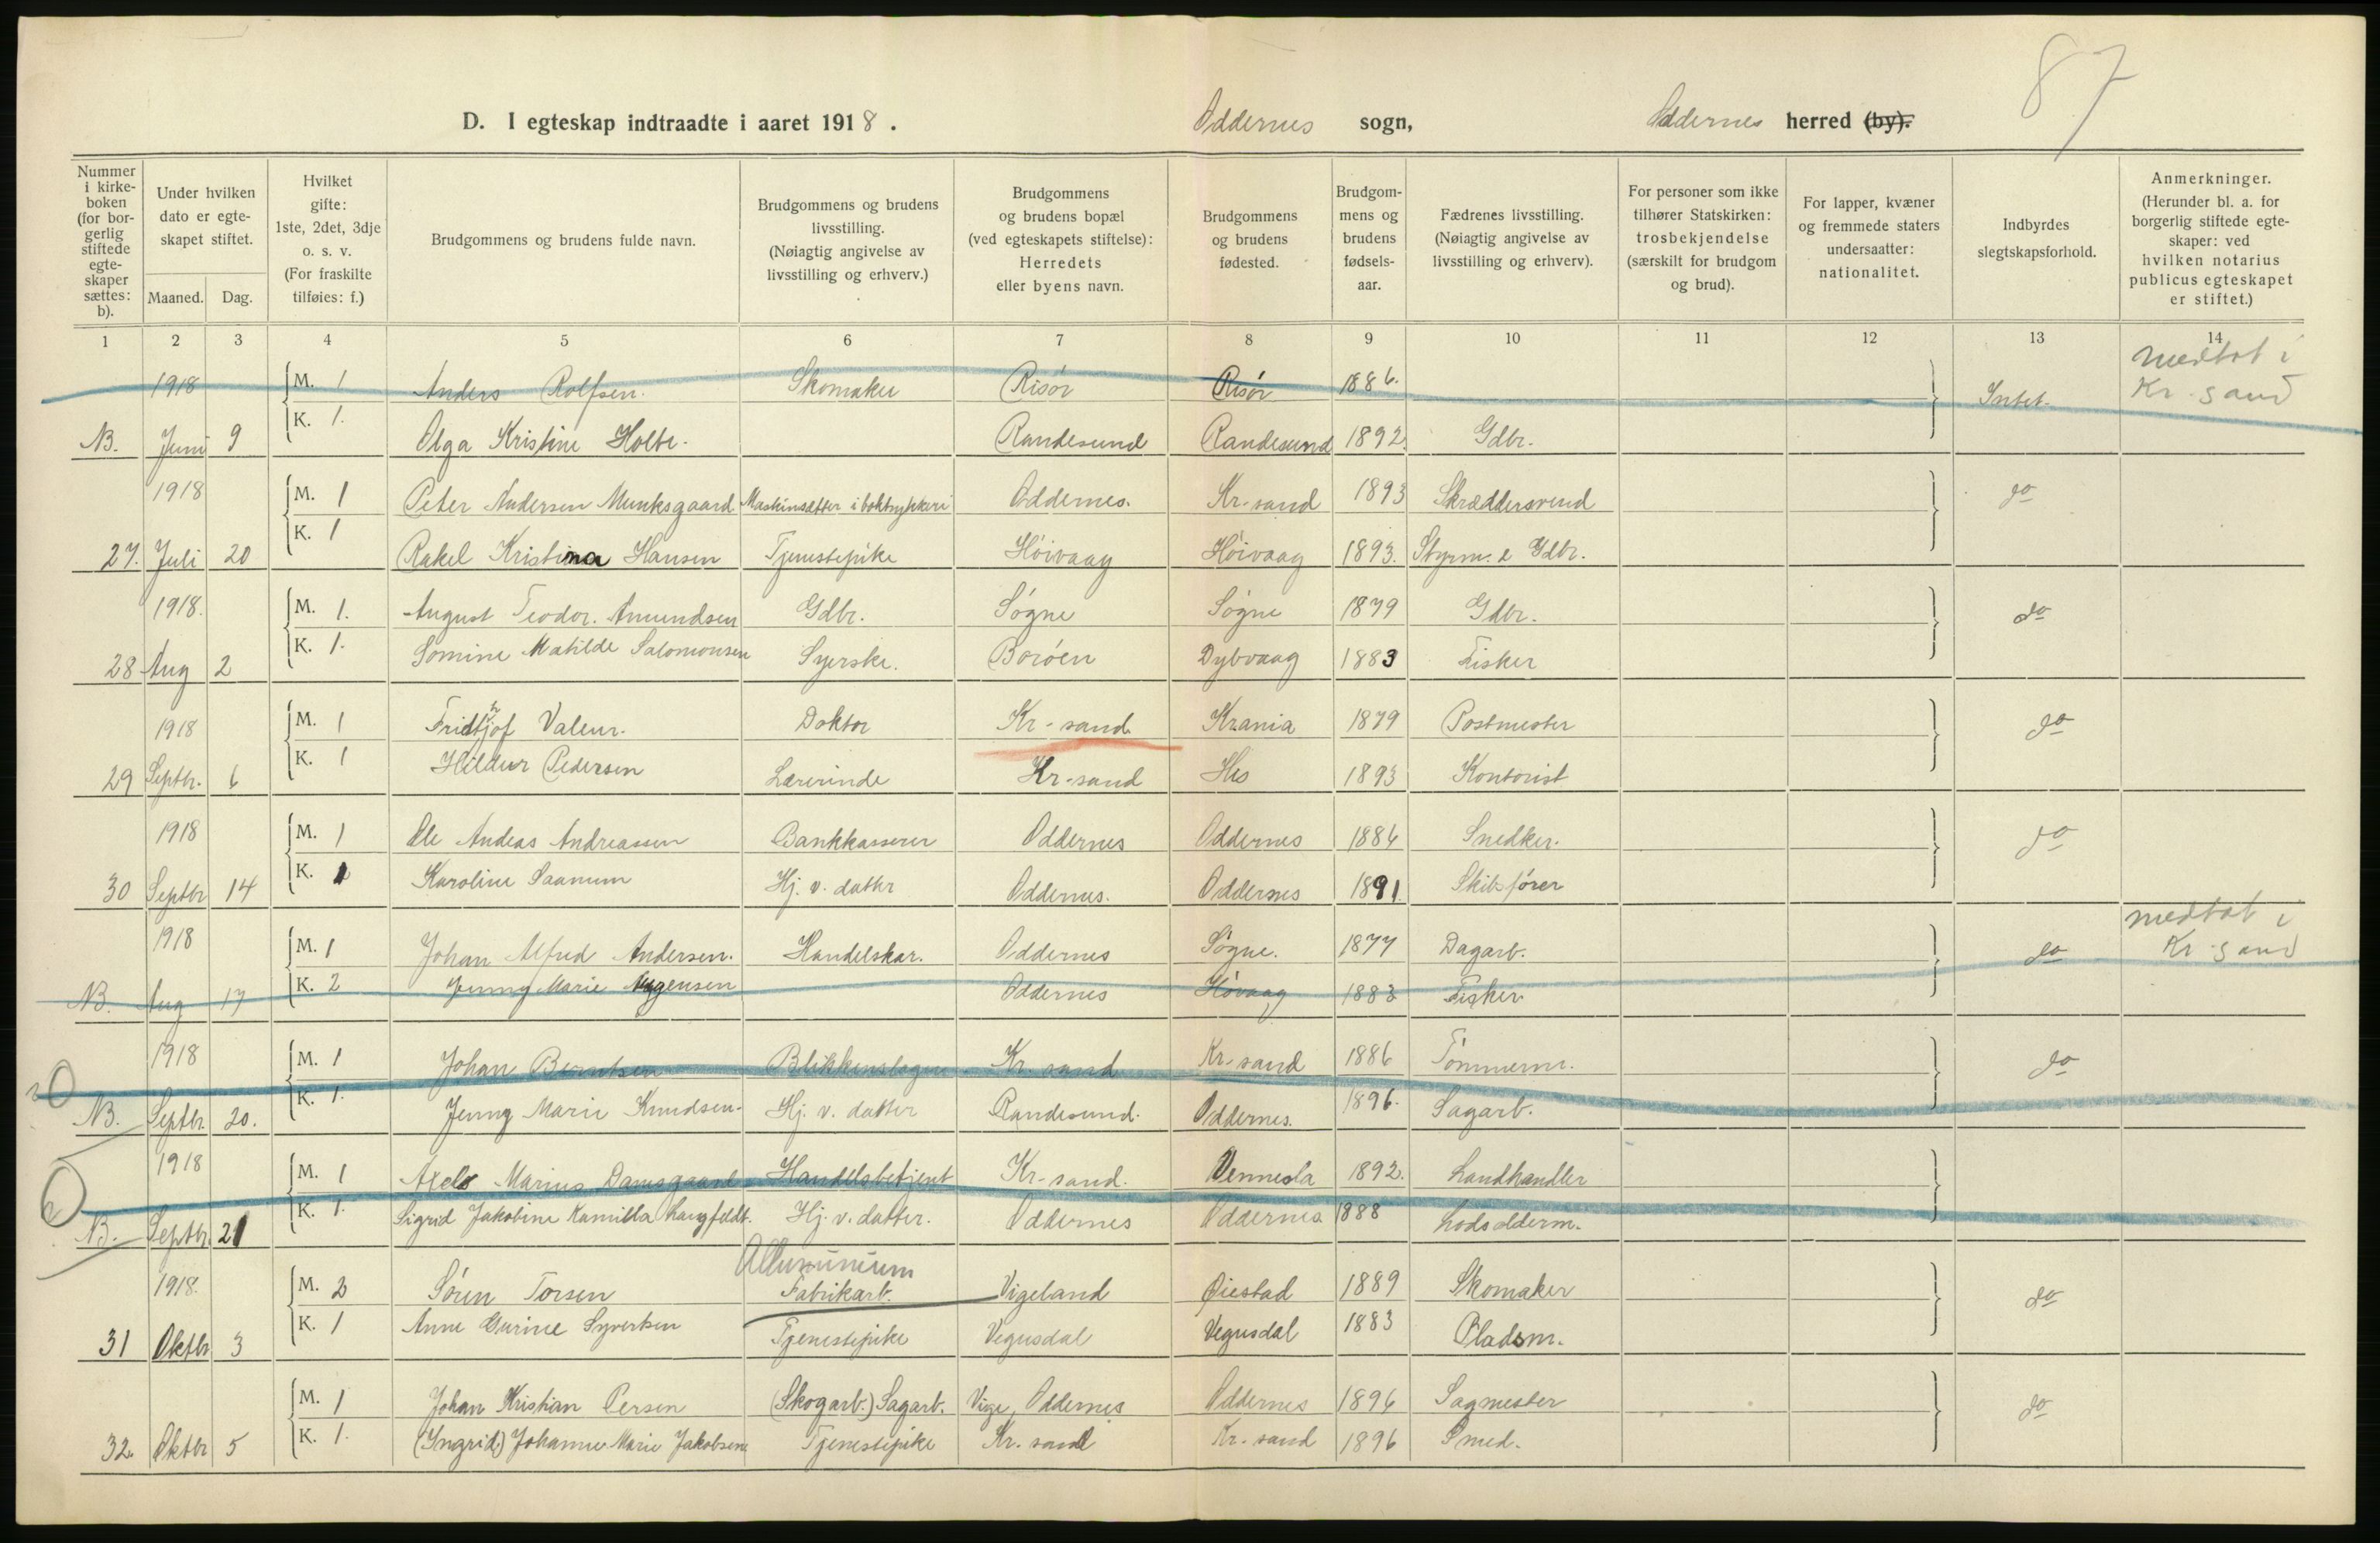 87
D. I egteskap indtraadte i aaret 1918. Oddernes sogn, Oddernes herred (by).
Nummer i kirkeboken (for borgerlig stiftede egteskaper sættes: b).
Under hvilken dato er egteskapet stiftet.
Maaned. Dag.
Hvilket gifte: 1ste, 2det, 3dje o. s. v. (For fraskilte tilføies: f.)
Brudgommens og brudens fulde navn.
Brudgommens og brudens livsstilling. (Nøiagtig angivelse av livsstilling og erhverv.)
Brudgommens og brudens bopæl (ved egteskapets stiftelse): Herredets eller byens navn.
Brudgommens og brudens fødested.
Brudgommens og brudens fødselsaar.
Fædrenes livsstilling. (Nøiagtig angivelse av livsstilling og erhverv).
For personer som ikke tilhører Statskirken: trosbekjendelse (særskilt for brudgom og brud).
For lapper, kvæner og fremmede staters undersaatter: nationalitet.
Indbyrdes slegtskapsforhold.
Anmerkninger. (Herunder bl. a. for borgerlig stiftede egteskaper: ved hvilken notarius publicus egteskapet er stiftet.)
1 2 3 4 5 6 7 8 9 10 11 12 13 14
1918 M. 1 Anders Rolfsen. Skomaker Risör Risör 1886. Intet. medtat i Kr. sand
NB. Juni 9 K. 1. Olga Kristine Holte. Randesund Randesund 1892. Gdbr.
1918 M. 1 Peter Andersen Munksgaard Maskinsætter i boktrykkeri Oddernes. Kr-sand 1893 Skræddersvend do
27. Juli 20 K. 1 Rakel Kristina Hansen Tjenestepike Höivaag Höivaag 1893. Styrm. & Gdbr.
1918. M. 1. August Teodor. Amundsen Gdbr. Søgne Søgne 1879 Gdbr. do
28 Aug 2 K. 1. Somine Matilde Salomonsen Syerske. Borøen Dybvaag 1883 Fisker
1918 M. 1 Fridtjof Valeur. Doktor Kr-sand. Krania 1879 Postmester do
29 Septbr. 6 K. 1 Hildur Pedersen Lærerinde Kr-sand His 1893 Kontorist
1918 M. 1 Ole Andeas Andreassen Bankkasserer Oddernes Oddernes 1886 Snedker. do
30 Septbr 14 K. 1 Karoline Saanum Hj. v. datter Oddernes. Oddernes 1891. Skibsfører
1918 M. 1 Johan Alfred Andersen. Handelskar. Oddernes Søgne. 1877 Dagarb. do medtat i Kr. sand
NB. Aug 17 K. 2 Jenny Marie Oddernes Høvaag 1883 Fisker.
1918 M. 1 Johan Berntsen Blikkenslager Kr. sand Kr-sand 1886 Tømmerm. do
NB. Septbr. 20. K. 1. Jenny Marie Knudsen. Hj. v. datter Randesund. Oddernes. 1896. Sagarb.
1918 M. 1 Marius Damsgaard Handelsbetjent Kr-sand. Vennesla 1892. Landhandler
NB. Septbr. 21 K. 1. Sigrid Jakobine Kamilla Langfeldt. Hj. v. datter. Oddernes Oddernes 1888 Lodsolderm.
Alluminium
1918. M. 2 Søren Torsen Fabrikarb. Vigeland Øiestad 1889 Skomaker do
31 Oktbr 3 K. 1 Anne Gurine Syvertsen Tjenestepike Vegusdal Vegusdal 1883 Pladsm.
M. 1 Johan Kristian Persen (Skogarb.) Sagarb. Vige, Oddernes Oddernes 1896 Sagmester do
32. Oktbr 5 K. 1. (Yngrid) Johanne Marie Jakobsen Tjenestepike Kr. sand Kr-sand 1896 Smed.